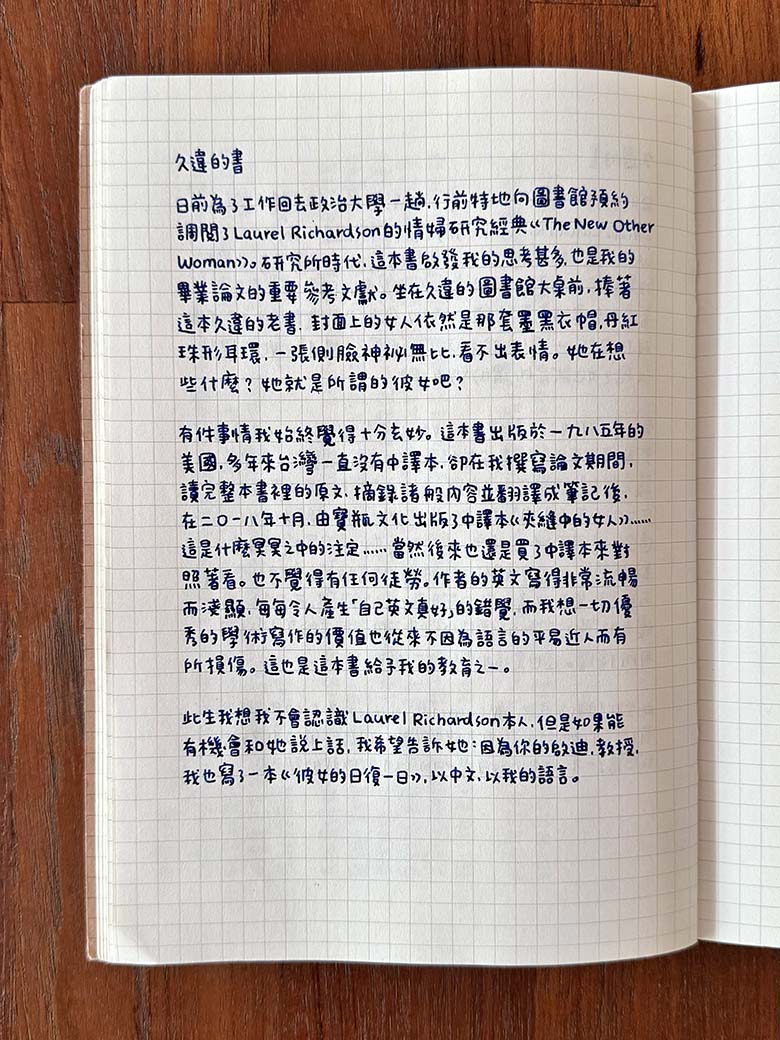 久違的書
日前為了工作回去政治大學一趟，行前特地向圖書館預約
調閱了Laurel Richardson的情婦研究經典《The New Other
Woman》。研究所時代，這本書啟發我的思考甚多，也是我的
畢業論文的重要參考文獻。坐在久違的圖書館大桌前，捧著
這本久違的老書，封面上的女人依然是那套墨黑衣帽，丹紅
珠形耳環，一張側臉神祕無比，看不出表情。她在想
些什麼？她就是所謂的彼女吧？
有件事情我始終覺得十分玄妙。這本書出版於一九八五年的
美國，多年來台灣一直沒有中譯本，卻在我撰寫論文期間，
讀完整本書裡的原文，摘錄諸般內容並翻譯成筆記後，
在二〇一八年十月，由寶瓶文化出版了中譯本《夾縫中的女人》……
這是什麼冥冥之中的注定……當然後來也還是買了中譯本來對
照著看。也不覺得有任何徒勞。作者的英文寫得非常流暢
而淺顯，每每令人產生「自己英文真好」的錯覺，而我想一切優
秀的學術寫作的價值也從來不因為語言的平易近人而有
所損傷。這也是這本書給予我的教育之一。
此生我想我不會認識Laurel Richardson本人，但是如果能
有機會和她說上話，我希望告訴她：因為你的啟迪，教授，
我也寫了一本《彼女的日復一日》，以中文，以我的語言。